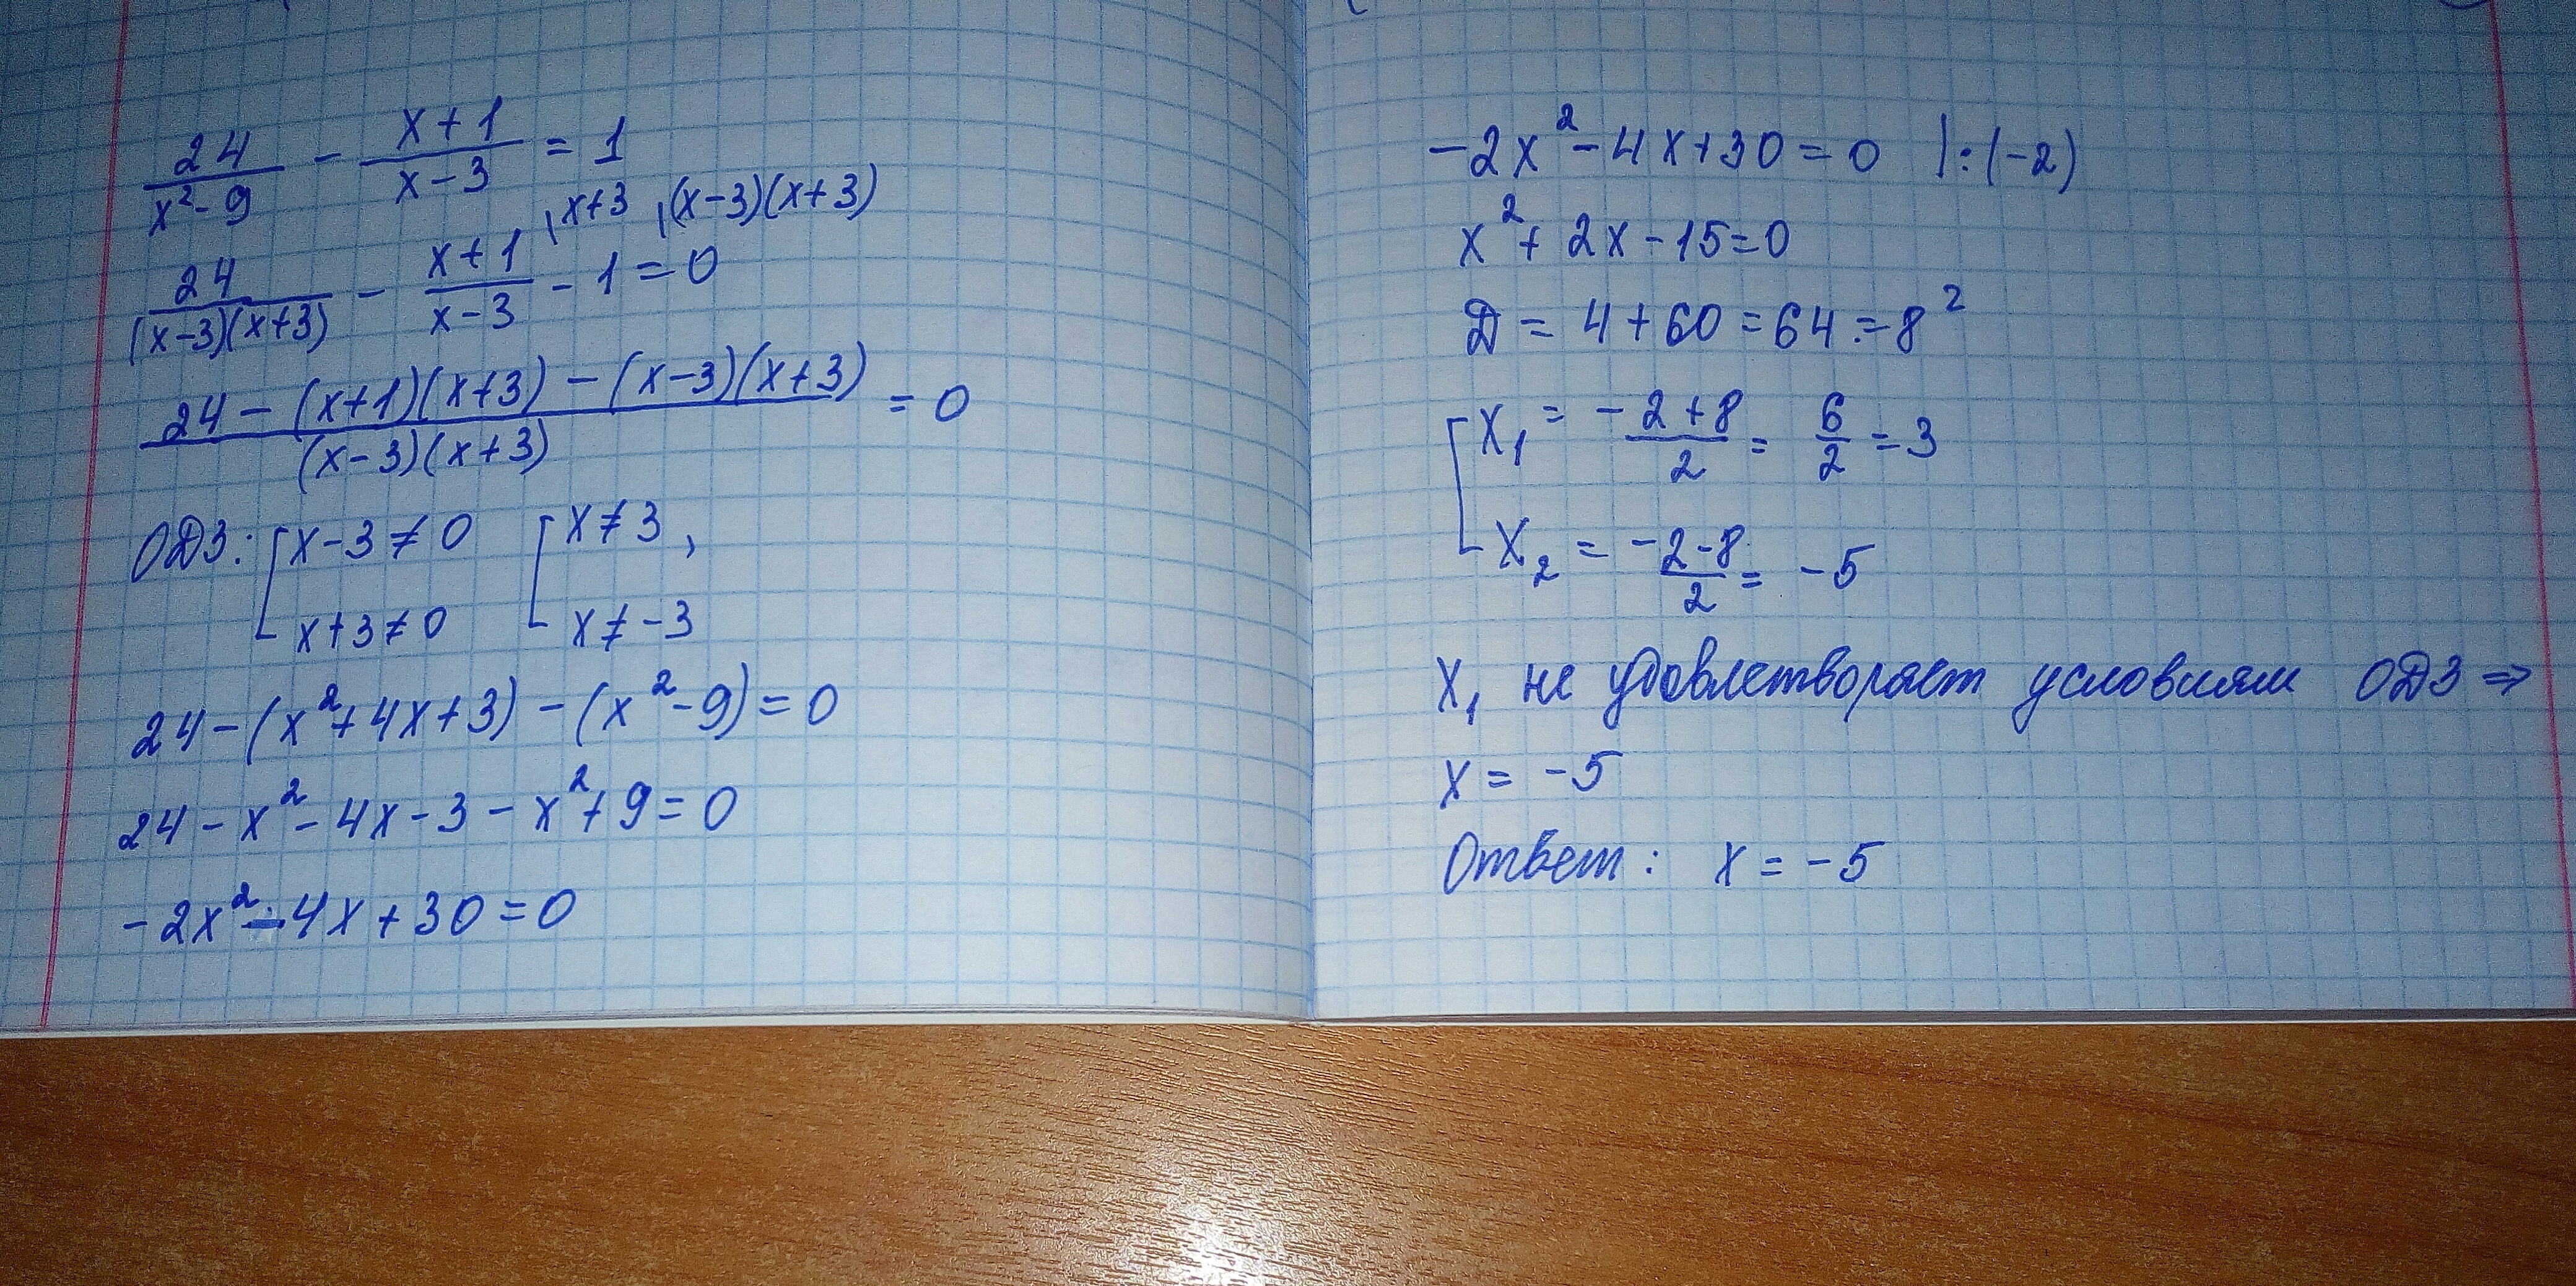 24/(x²-9) - (x+1)/(x-3) = 1
24/((x-3)(x+3)) - (x+1)/(x-3) \x+3 - 1 \(x-3)(x+3) = 0
(24-(x+1)(x+3)-(x-3)(x+3))/((x-3)(x+3)) = 0
ОДЗ: [x-3≠0 [x≠3,
x+3≠0 x≠-3
24-(x²+4x+3)-(x²-9)=0
24-x²-4x-3-x²+9=0
-2x²-4x+30=0
-2x²-4x+30=0 |:(-2)
x²+2x-15=0
Д = 4+60=64=8²
[x₁ = (-2+8)/2 = 6/2 = 3
x₂ = (-2-8)/2 = -5
x₁ не удовлетворяет условиям ОДЗ ⇒
x = -5
Ответ: x = -5